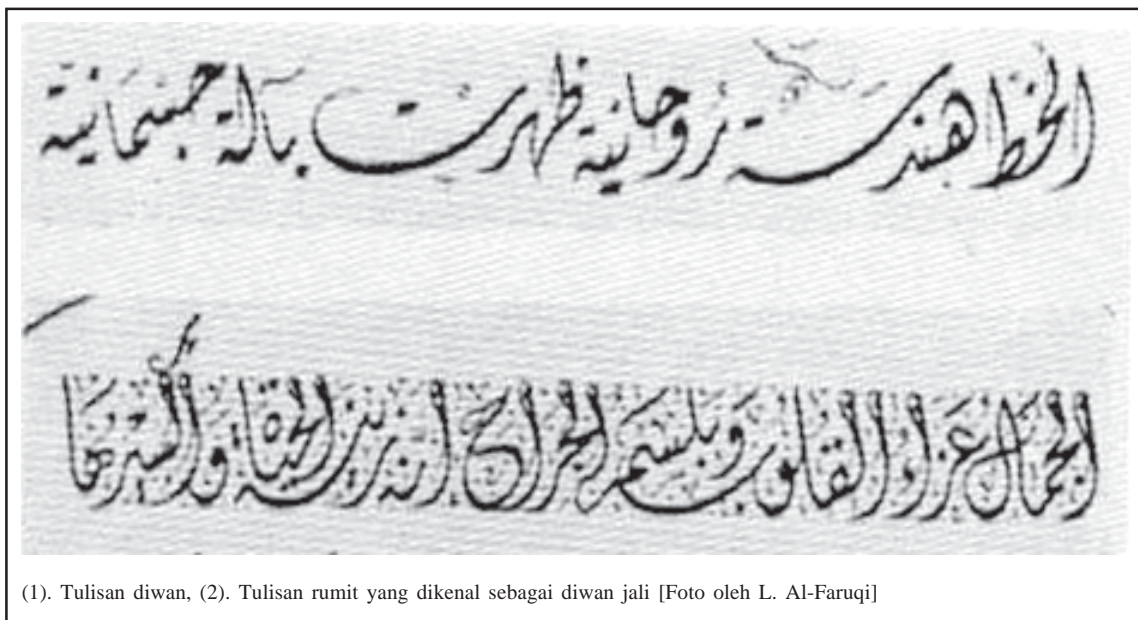 الخط هندسة روحانية ظهرت بآلة جسمانية
الجمال غذاء القلوب وبلسم الجراح انه زينة الحياة
(1). Tulisan diwan, (2). Tulisan rumit yang dikenal sebagai diwan jali [Foto oleh L. Al-Faruqi]